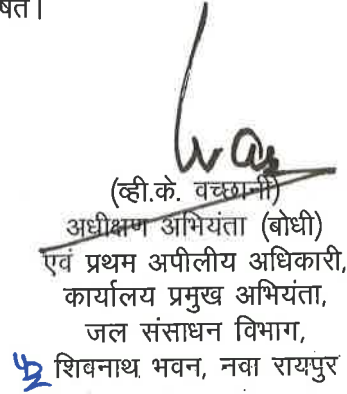 षत।
(व्ही.के. वच्छानी)
अधीक्षण अभियंता (बोधी)
एवं प्रथम अपीलीय अधिकारी,
कार्यालय प्रमुख अभियंता,
जल संसाधन विभाग,
शिवनाथ भवन, नवा रायपुर